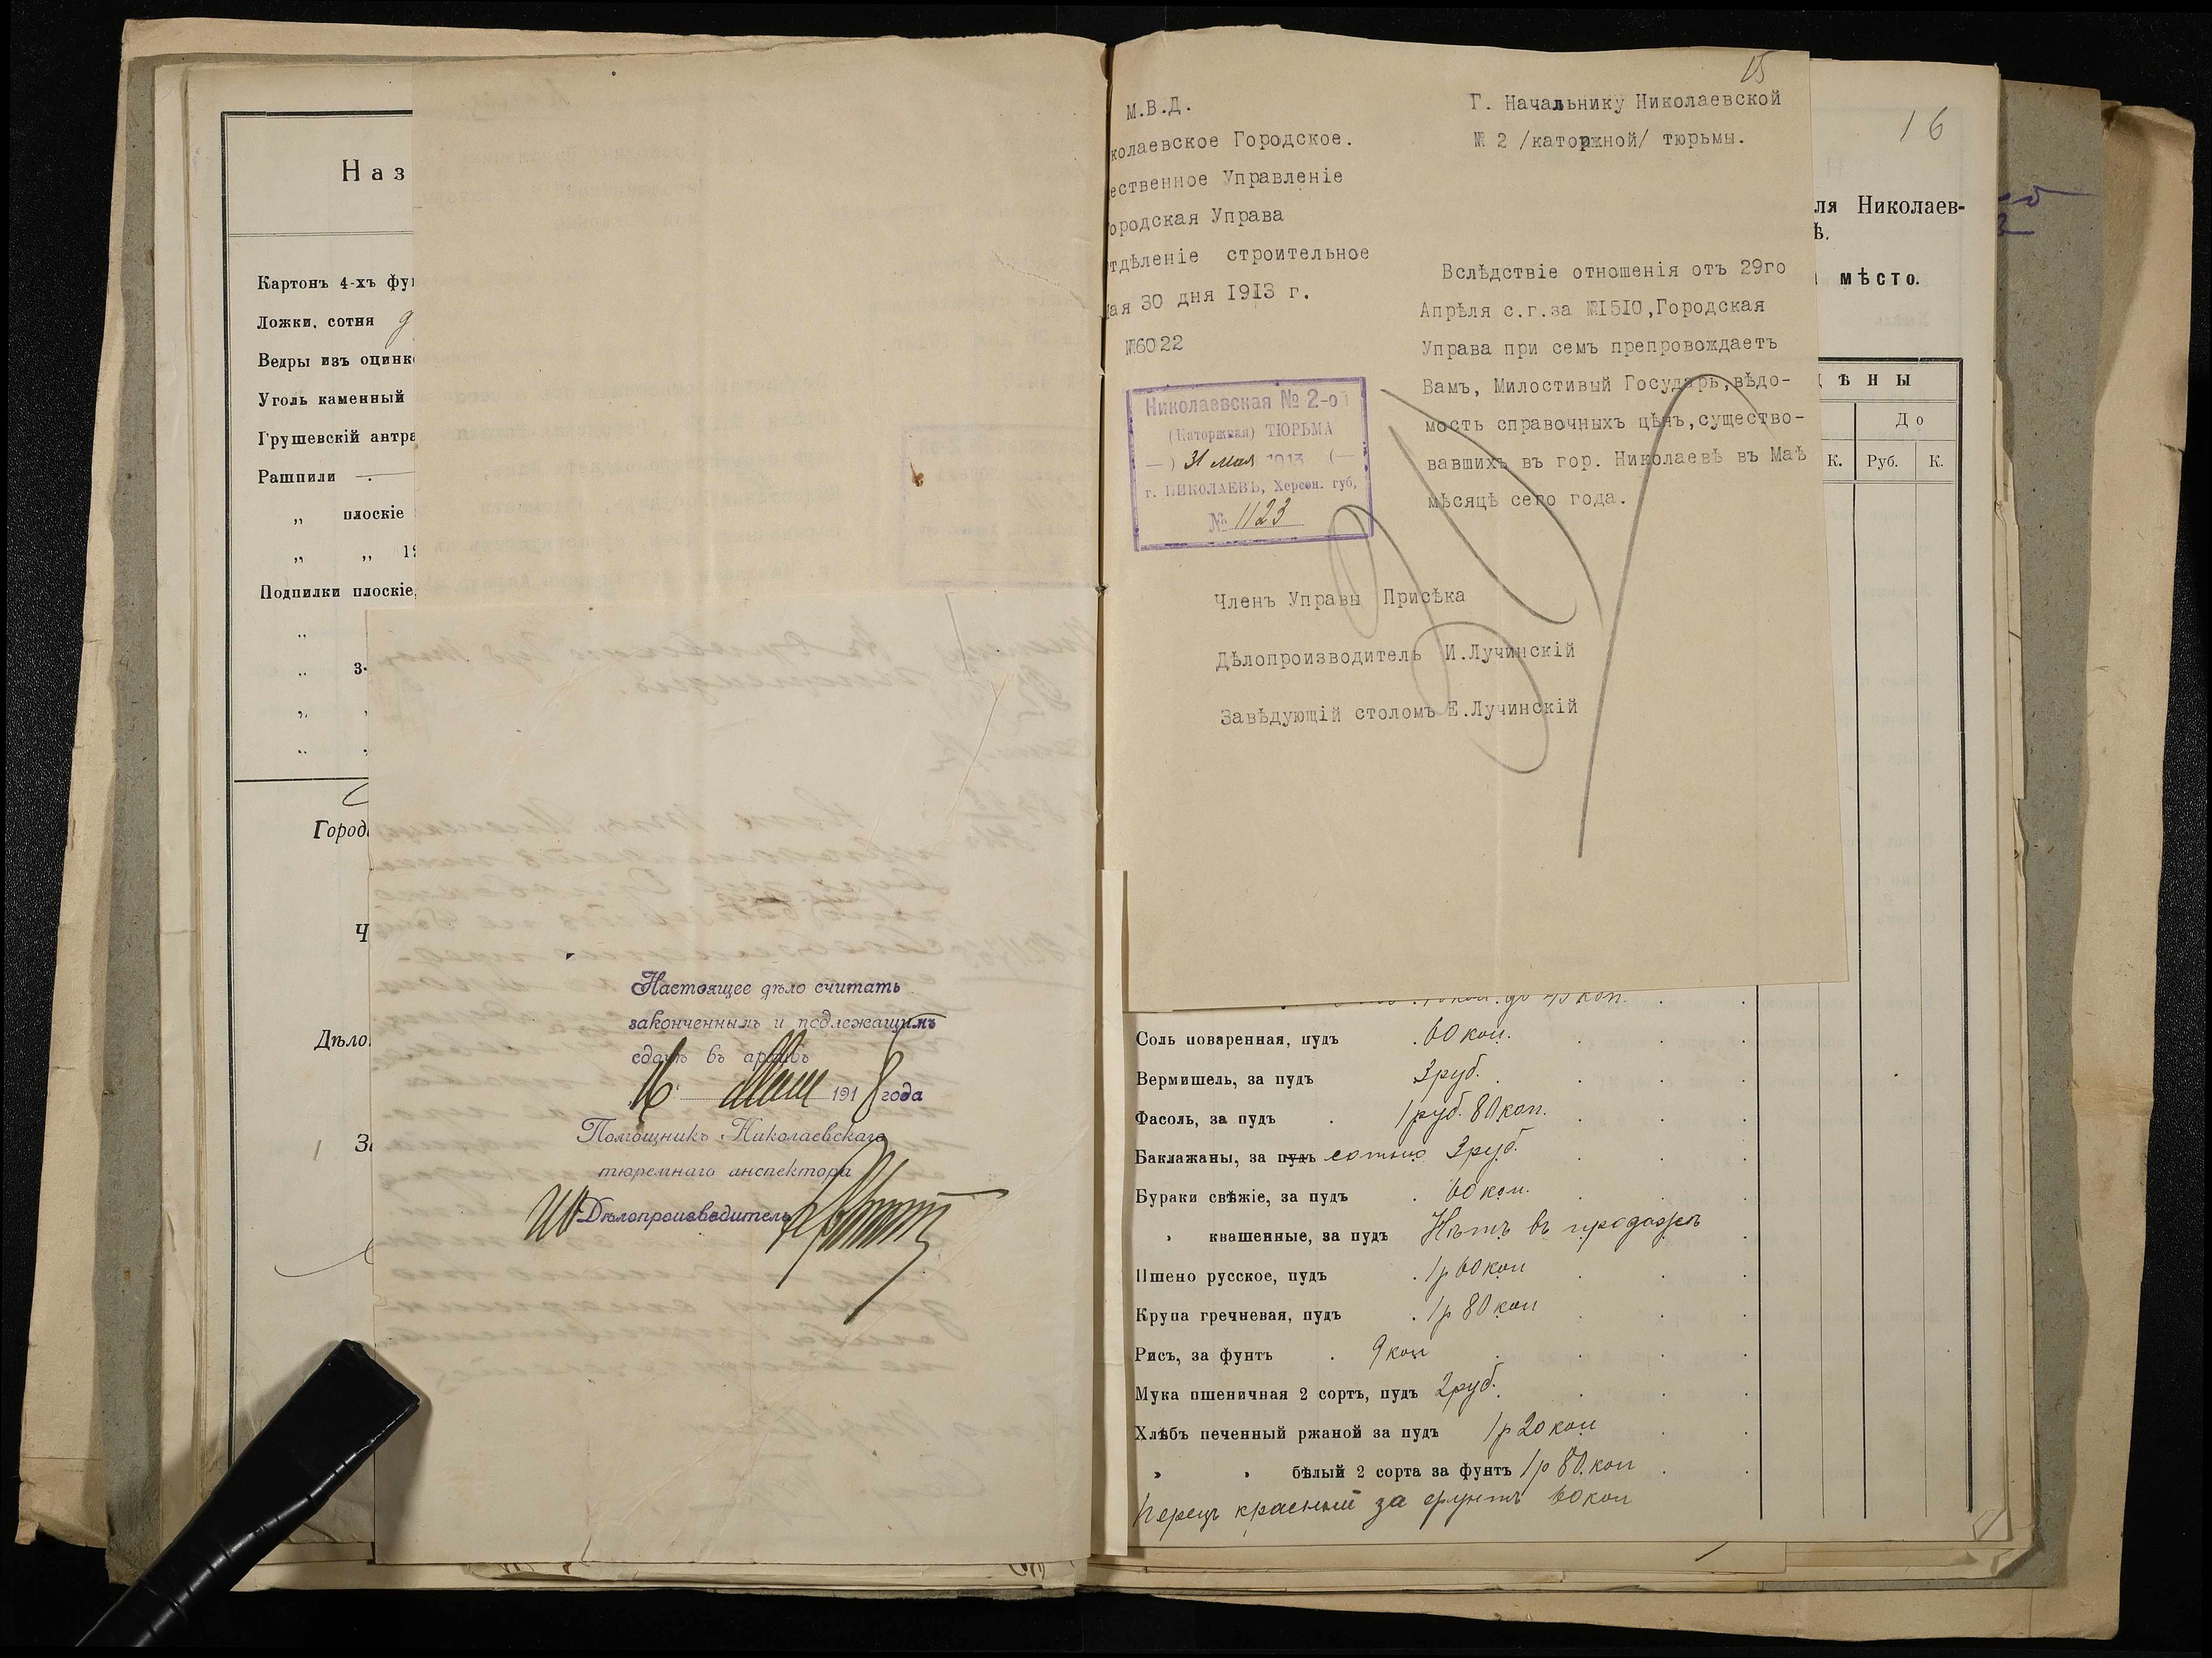 Наз
Картонъ 4-хъ фу
Ложки, сотня
Ведры изъ оцинк
Уголь каменный
Грушевскій антра
Рашпили —
„ плоскіе
„ „ 1
Подпилки плоскіе,
„
„ 3-
„
„
Город
Ч
Дѣло
З
Настоящее дѣло считать
законченнымъ и подлежащимъ
сдачѣ въ архивъ
16 Мая 1918 года
Помощникъ Николаевскаго
тюремнаго инспектора
ИО Дѣлопроизводитель
15
М.В.Д.
колаевское Городское.
ественное Управленіе
ородская Управа
тдѣленіе строительное
ая 30 дня 1913 г.
№6022
Николаевская № 2-о
(Каторжная) ТЮРЬМА
— ) 31 мая 1913 ( —
г. НИКОЛАЕВЪ, Херсон. губ,
№ 1123
Г. Начальнику Николаевской
№ 2 /каторжной/ тюрьмы.
Вслѣдствіе отношенія отъ 29го
Апрѣля с.г.за №1510,Городская
Управа при семъ препровождаетъ
Вамъ, Милостивый Государь,вѣдо-
мость справочныхъ цѣнъ,существо-
вавшихъ въ гор. Николаевѣ въ Маѣ
мѣсяцѣ сего года.
Членъ Управы Присѣка
Дѣлопроизводитель И.Лучинскій
Завѣдующій столомъ Е.Лучинскій
16
ля Николаев-
ѣ.
мѣсто.
ѢНЫ
До
К. Руб. К.
Соль поваренная, пудъ 60 коп.
Вермишель, за пудъ 3 руб.
Фасоль, за пудъ 1 руб. 80 коп.
Баклажаны, за пудъ сотню 3 руб.
Бураки свѣжіе, за пудъ 60 коп.
„ квашенные, за пудъ Нѣтъ въ продажѣ
Пшено русское, пудъ 1 р 60 коп
Крупа гречневая, пудъ 1 р 80 коп
Рисъ, за фунтъ 9 коп
Мука пшеничная 2 сортъ, пудъ 2 руб.
Хлѣбъ печенный ржаной за пудъ 1 р 20 коп
„ „ бѣлый 2 сорта за фунтъ 1 р 80 коп
Перецъ красный за фунтъ 60 коп